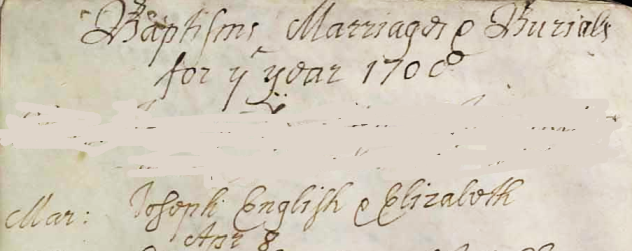 Baptisms Marriages & Burials
for yᵉ year 170
Mar: Joseph English & Elizabeth
Apr 8